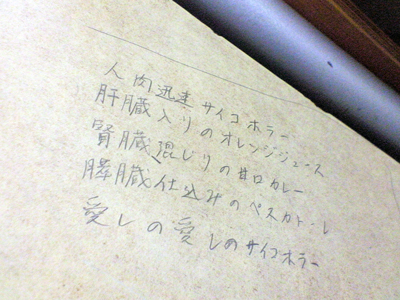 人肉迅速サイコホラー
肝臓入りのオレンジジュース
腎臓混じりの甘口カレー
膵臓仕込みのペスカトーレ
愛しの愛しのサイコホラー